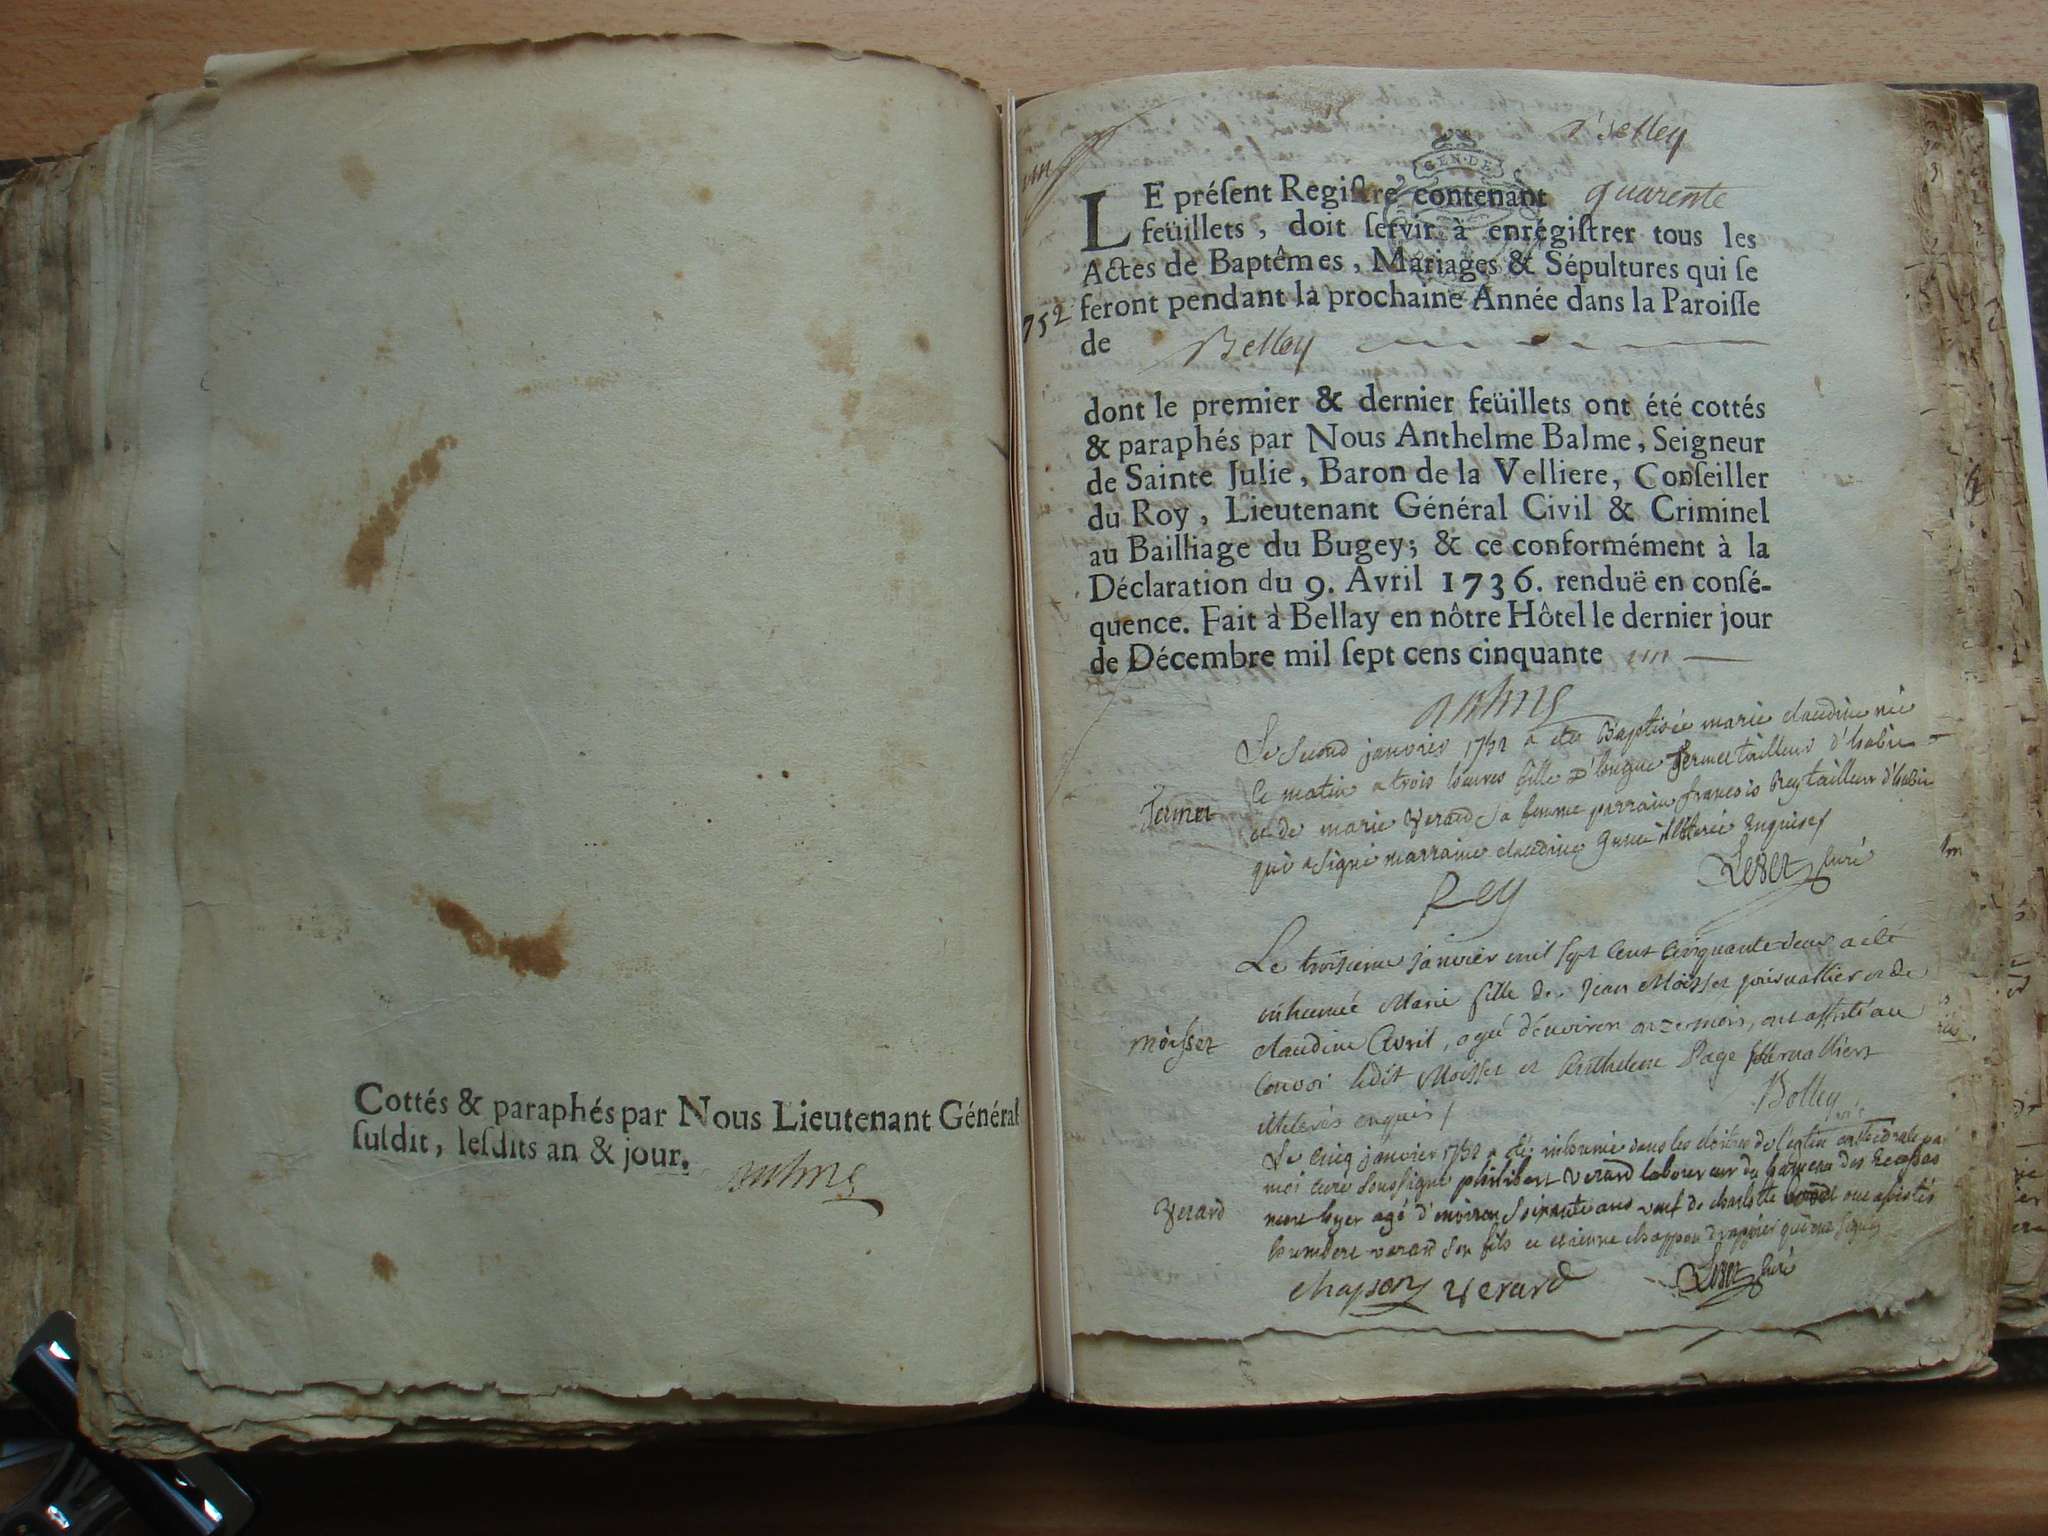 Cottés & paraphés par Nous Lieutenant Général
ſuſdit, leſdits an & jour.
Belley
GEN·DE
LE préſent Regiſtre contenant quarente
feüillets, doit ſervir à enrégiſtrer tous les
Actes de Baptêmes, Mariages & Sépultures qui ſe
feront pendant la prochaine Année dans la Paroiſſe
752
de Belley
dont le premier & dernier feüillets ont été cottés
& paraphés par Nous Anthelme Balme, Seigneur
de Sainte Julie, Baron de la Velliere, Conſeiller
du Roy, Lieutenant Général Civil & Criminel
au Bailliage du Bugey; & ce conformément à la
Déclaration du 9. Avril 1736. renduë en conſé-
quence. Fait à Bellay en nôtre Hôtel le dernier jour
de Décembre mil ſept cens cinquante un
Le second janvier 1752 a eté Baptisée marie claudine née
ce matin a trois heures fille d' tailleur d'habit
et de marie Verard sa femme parrain francois Rey tailleur d'habit
qui a signé marraine claudine illiterée enquise
Rey
curé
Le troisieme janvier mil sept cent cinquante deux a été
inhumée Marie fille de Jean Moisset journallier et de
Moisset
claudine Avril, agée d'environ onze mois, ont assisté au
convoi ledit Moisset et Anthelme Page journalliers
illiterés enquis
Bolley
Le cinq janvier 1752 a été inhumé dans les cloitres de l'eglise cathedrale par
moi curé soussigné philibert Verard laboureur du hameau des
Verard
mort hyer agé d'environ soixante ans veuf de charlotte ont assisté
humbert verard son fils et etienne chappon drappier qui ont signé
chapon verard
curé